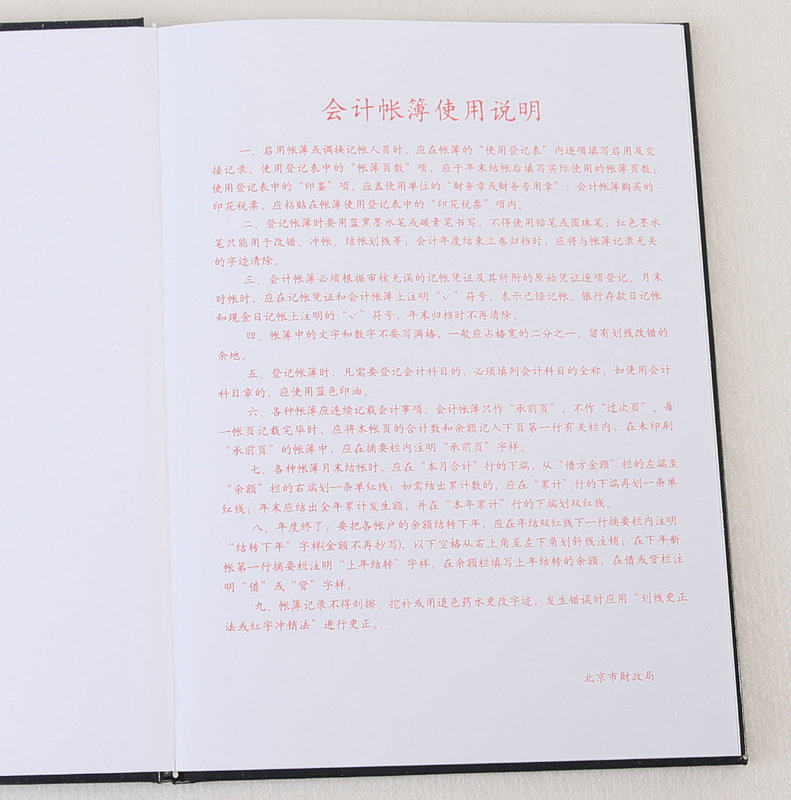 会计帐簿使用说明
一、启用帐簿或调换记帐人员时，应在帐簿的“使用登记表”内逐项填写启用及交
接记录。使用登记表中的“帐簿页数”项，应于年末结帐后填写实际使用的帐簿页数；
使用登记表中的“印鉴”项，应盖使用单位的“财务章或财务专用章”；会计帐簿购买的
印花税票，应粘贴在帐簿使用登记表中的“印花税票”项内。
二、登记帐簿时要用蓝黑墨水笔或碳素笔书写，不得使用铅笔或圆珠笔；红色墨水
笔只能用于改错、冲帐、结帐划线等；会计年度结束立卷归档时，应将与帐簿记录无关
的字迹清除。
三、会计帐簿必须根据审核无误的记帐凭证及其所附的原始凭证逐项登记。月末
对帐时，应在记帐凭证和会计帐簿上注明“√”符号，表示已经记帐。银行存款日记帐
和现金日记帐上注明的“√”符号，年末归档时不再清除。
四、帐簿中的文字和数字不要写满格，一般应占格宽的二分之一，留有划线改错的
余地。
五、登记帐簿时，凡需要登记会计科目的，必须填列会计科目的全称；如使用会计
科目章的，应使用蓝色印油。
六、各种帐簿应连续记载会计事项。会计帐簿只作“承前页”，不作“过次页”。每
一帐页记载完毕时，应将本帐页的合计数和余额记入下页第一行有关栏内，在未印刷
“承前页”的帐簿中，应在摘要栏内注明“承前页”字样。
七、各种帐簿月末结帐时，应在“本月合计”行的下端，从“借方金额”栏的左端至
“余额”栏的右端划一条单红线；如需结出累计数的，应在“累计”行的下端再划一条单
红线；年末应结出全年累计发生额，并在“本年累计”行的下端划双红线。
八、年度终了，要把各帐户的余额结转下年，应在年结双红线下一行摘要栏内注明
“结转下年”字样(金额不再抄写)，以下空格从右上角至左下角划斜线注销；在下年新
帐第一行摘要栏注明“上年结转”字样，在余额栏填写上年结转的余额，在借或贷栏注
明“借”或“贷”字样。
九、帐簿记录不得刮擦、挖补或用退色药水更改字迹，发生错误时应用“划线更正
法或红字冲销法”进行更正。
北京市财政局